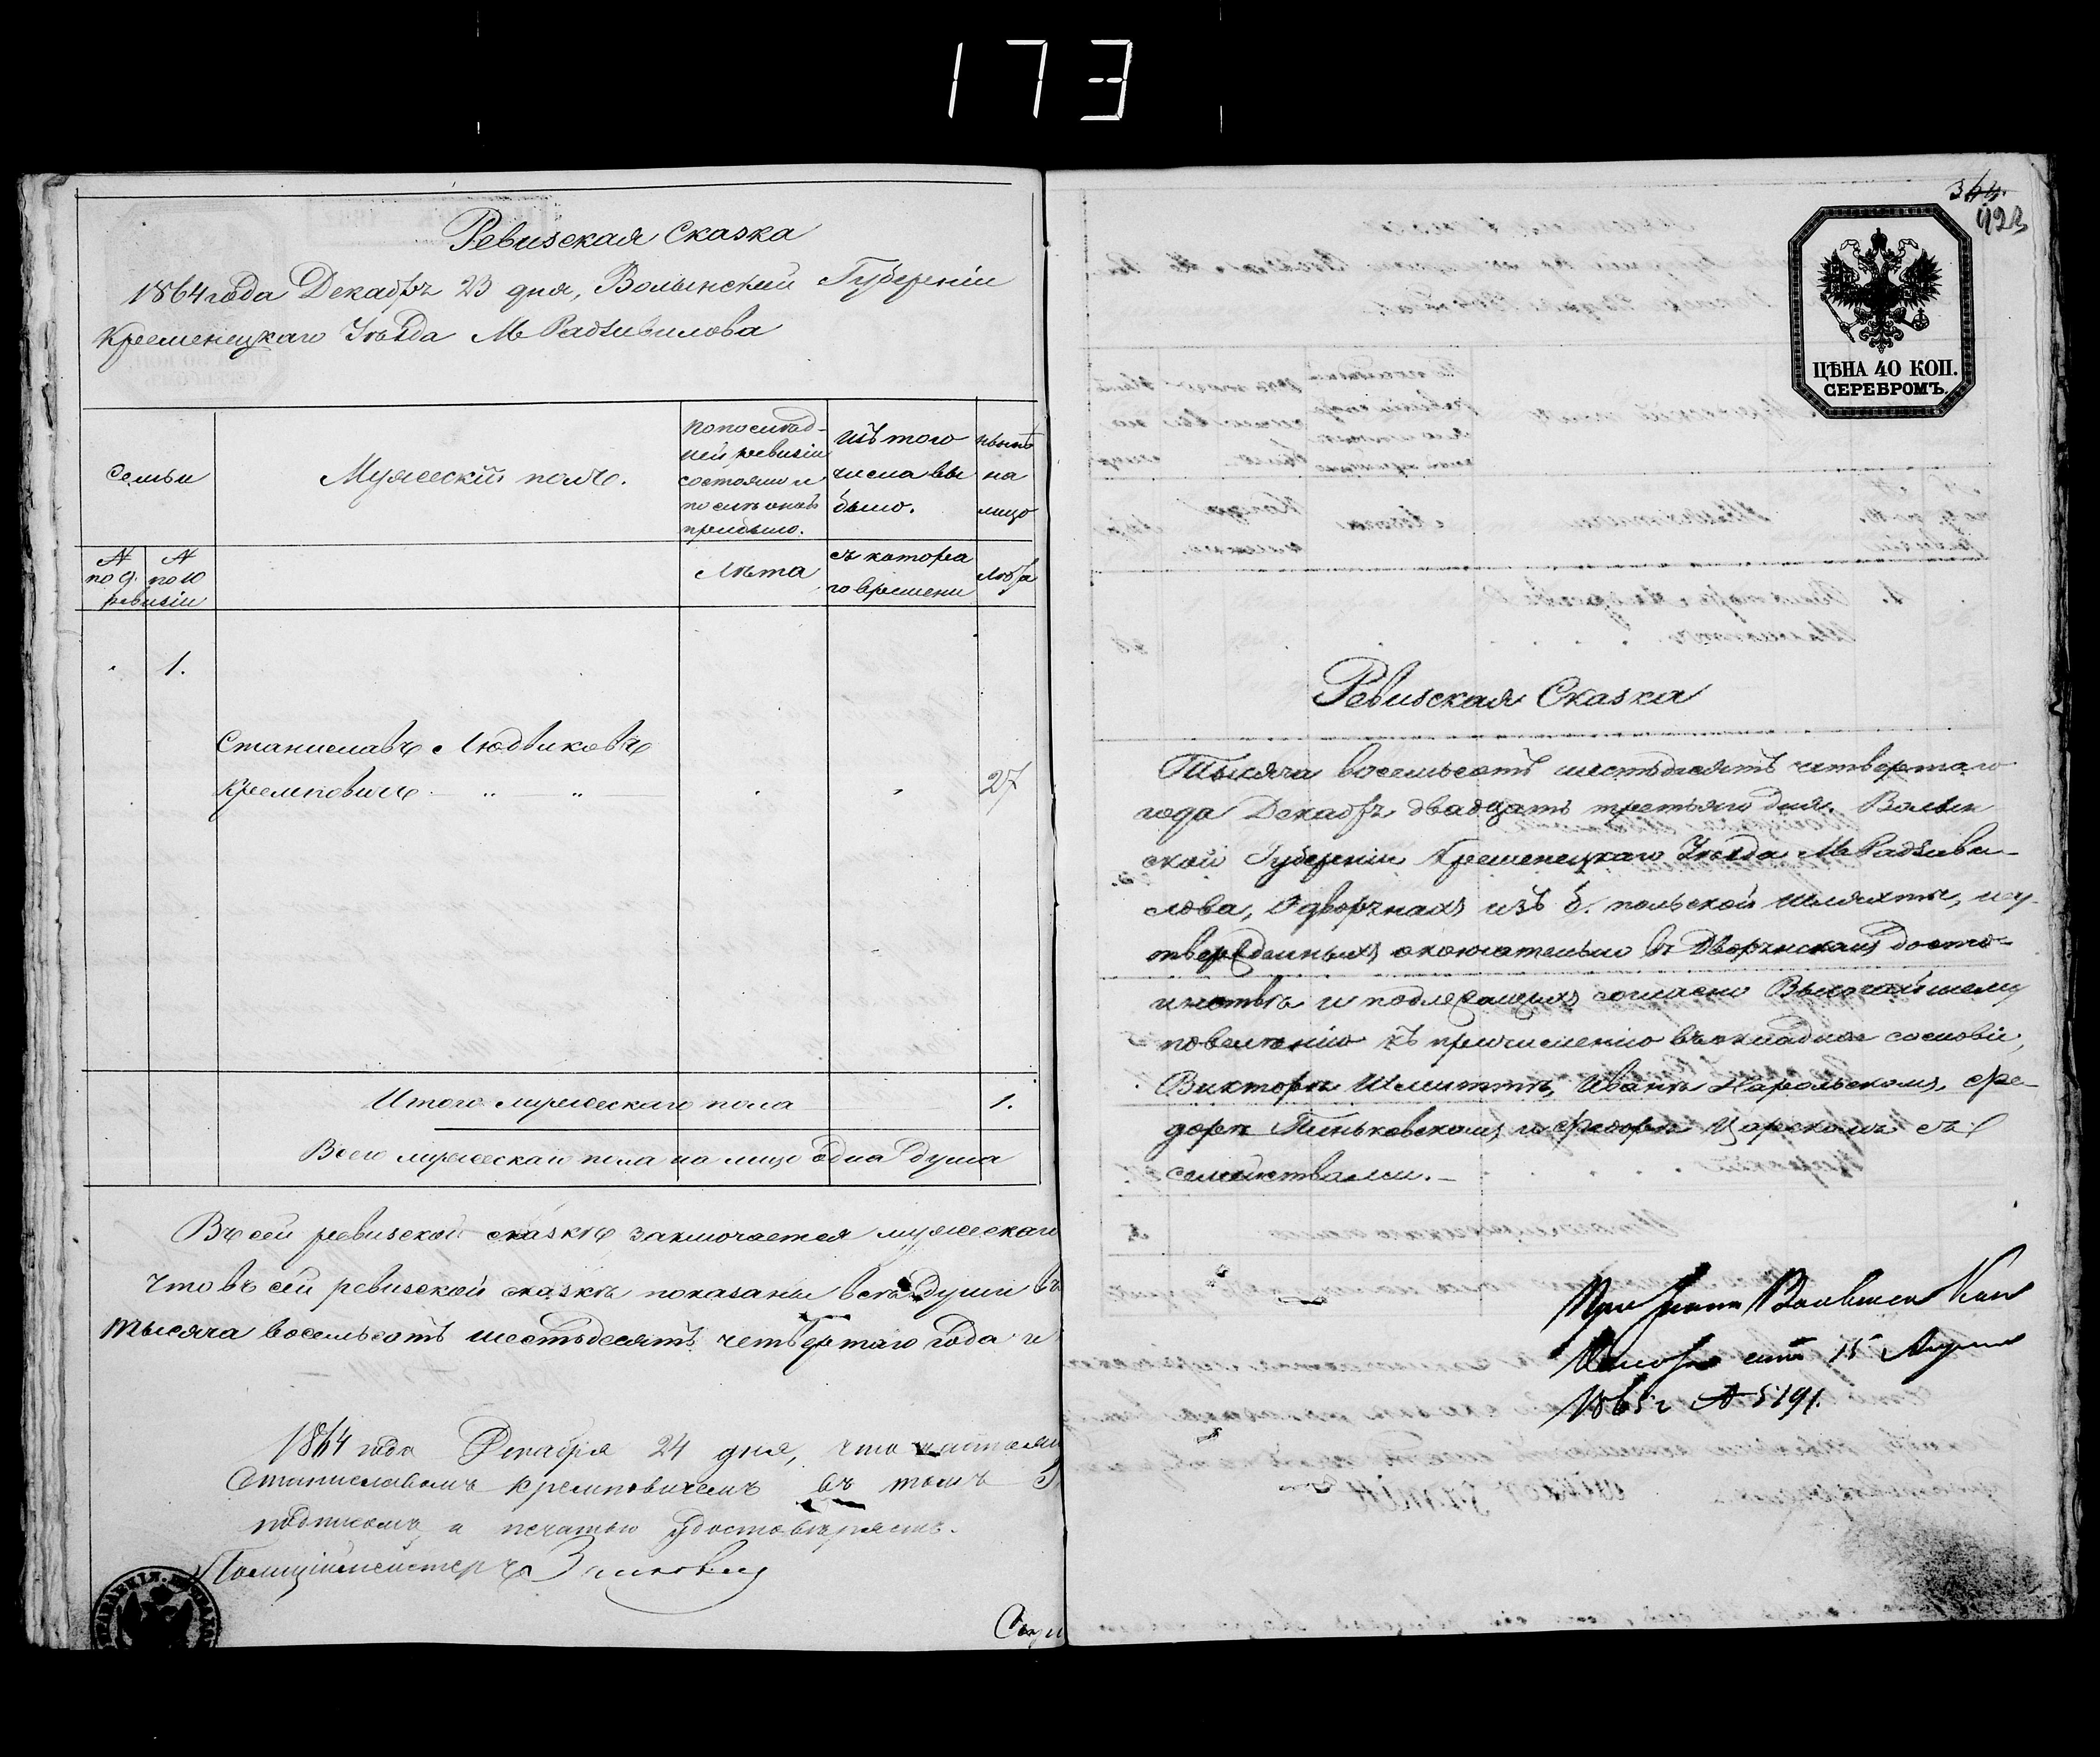 173
Ревизская Сказка
1864 года Декабря 23 дня, Волынской Губерніи
Кременецкаго Уѣзда М. Радзивилова
Семьи
Мужескій полъ.
По послѣд-
ней ревизіи
состояло и
послѣ онаго
прибыло.
Изъ того
числа вы
было.
Нынѣ
на
лицо
№ по 9.
№ по 10
ревизіи
Лѣта
съ котора
го времени
Лѣта
1.
Станиславъ Людвиковъ
Кремповичъ " " 27
Итого мужескаго пола 1.
Всего мужескаго пола на лицо одна душа
Въ сей ревизской сказкѣ заключается мужескаго
Что въ сей ревизской сказкѣ показаны всѣ души въ
тысяча восемьсотъ шестьдесятъ четвертаго года и
1864 года Декабря 24 дня, что
Станиславомъ Кремповичемъ въ томъ
подписомъ и печатью удостовѣряетъ.
Полиціймейстеръ
364.
423
ЦѢНА 40 КОП.
СЕРЕБРОМЪ.
Ревизская Сказка
Тысяча восемьсотъ шестьдесятъ четвертаго
года Декабря двадцать третьяго дня. Волын
ской Губерніи Кременецкаго Уѣзда М. Радзиви-
лова, О дворянахъ изъ б. польской шляхты, неу-
твержденныхъ окончательно въ Дворянскомъ досто-
инствѣ и подлежащихъ согласно Высочайшему
повелѣнію къ причисленію въ окладное сословіе,
Викторѣ Шмиттѣ, Иванѣ Карольскомъ, Фе-
дорѣ Пеньковскомъ и Федорѣ Царскомъ съ
семействами.
При
15
1865 г № 5191.